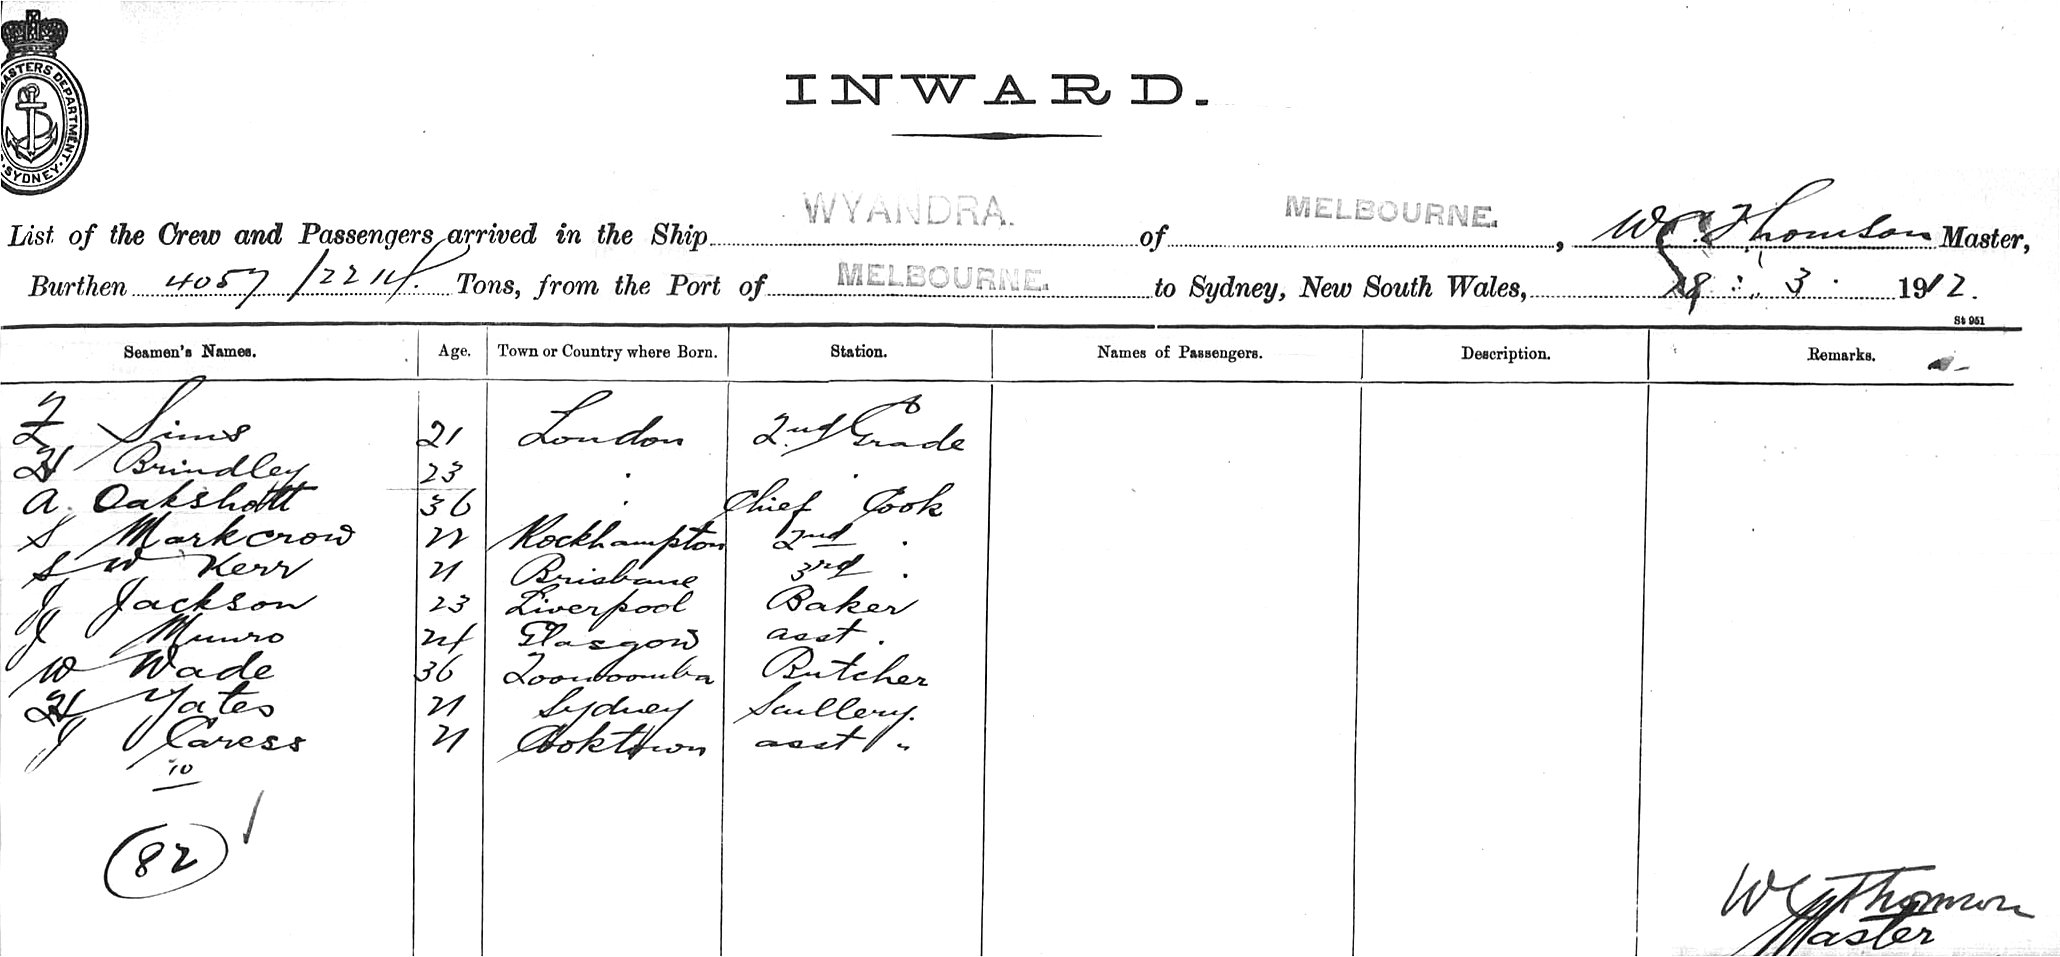 MASTERS DEPARTMENT
SYDNEY
INWARD.
List of the Crew and Passengers arrived in the Ship WYANDRA. of MELBOURNE., W Thomson Master,
Burthen 4057/2214 Tons, from the Port of MELBOURNE. to Sydney, New South Wales, 18 : 3 . 1912.
St 951
Seamen's Names. Age. Town or Country where Born. Station. Names of Passengers. Description. Remarks.
Sims 21 London 2nd Grade
H Brindley 23 " "
A. Oakshott 36 " Chief Cook
S Markcrow 22 Rockhampton 2nd "
S W Kerr 21 Brisbane 3rd "
J Jackson 23 Liverpool Baker
J Munro 24 Glasgow asst .
W Wade 36 Toowoomba Butcher
H Yates 21 Sydney Scullery.
J Caress 21 Cooktown asst "
10
82
W Thomson
Master